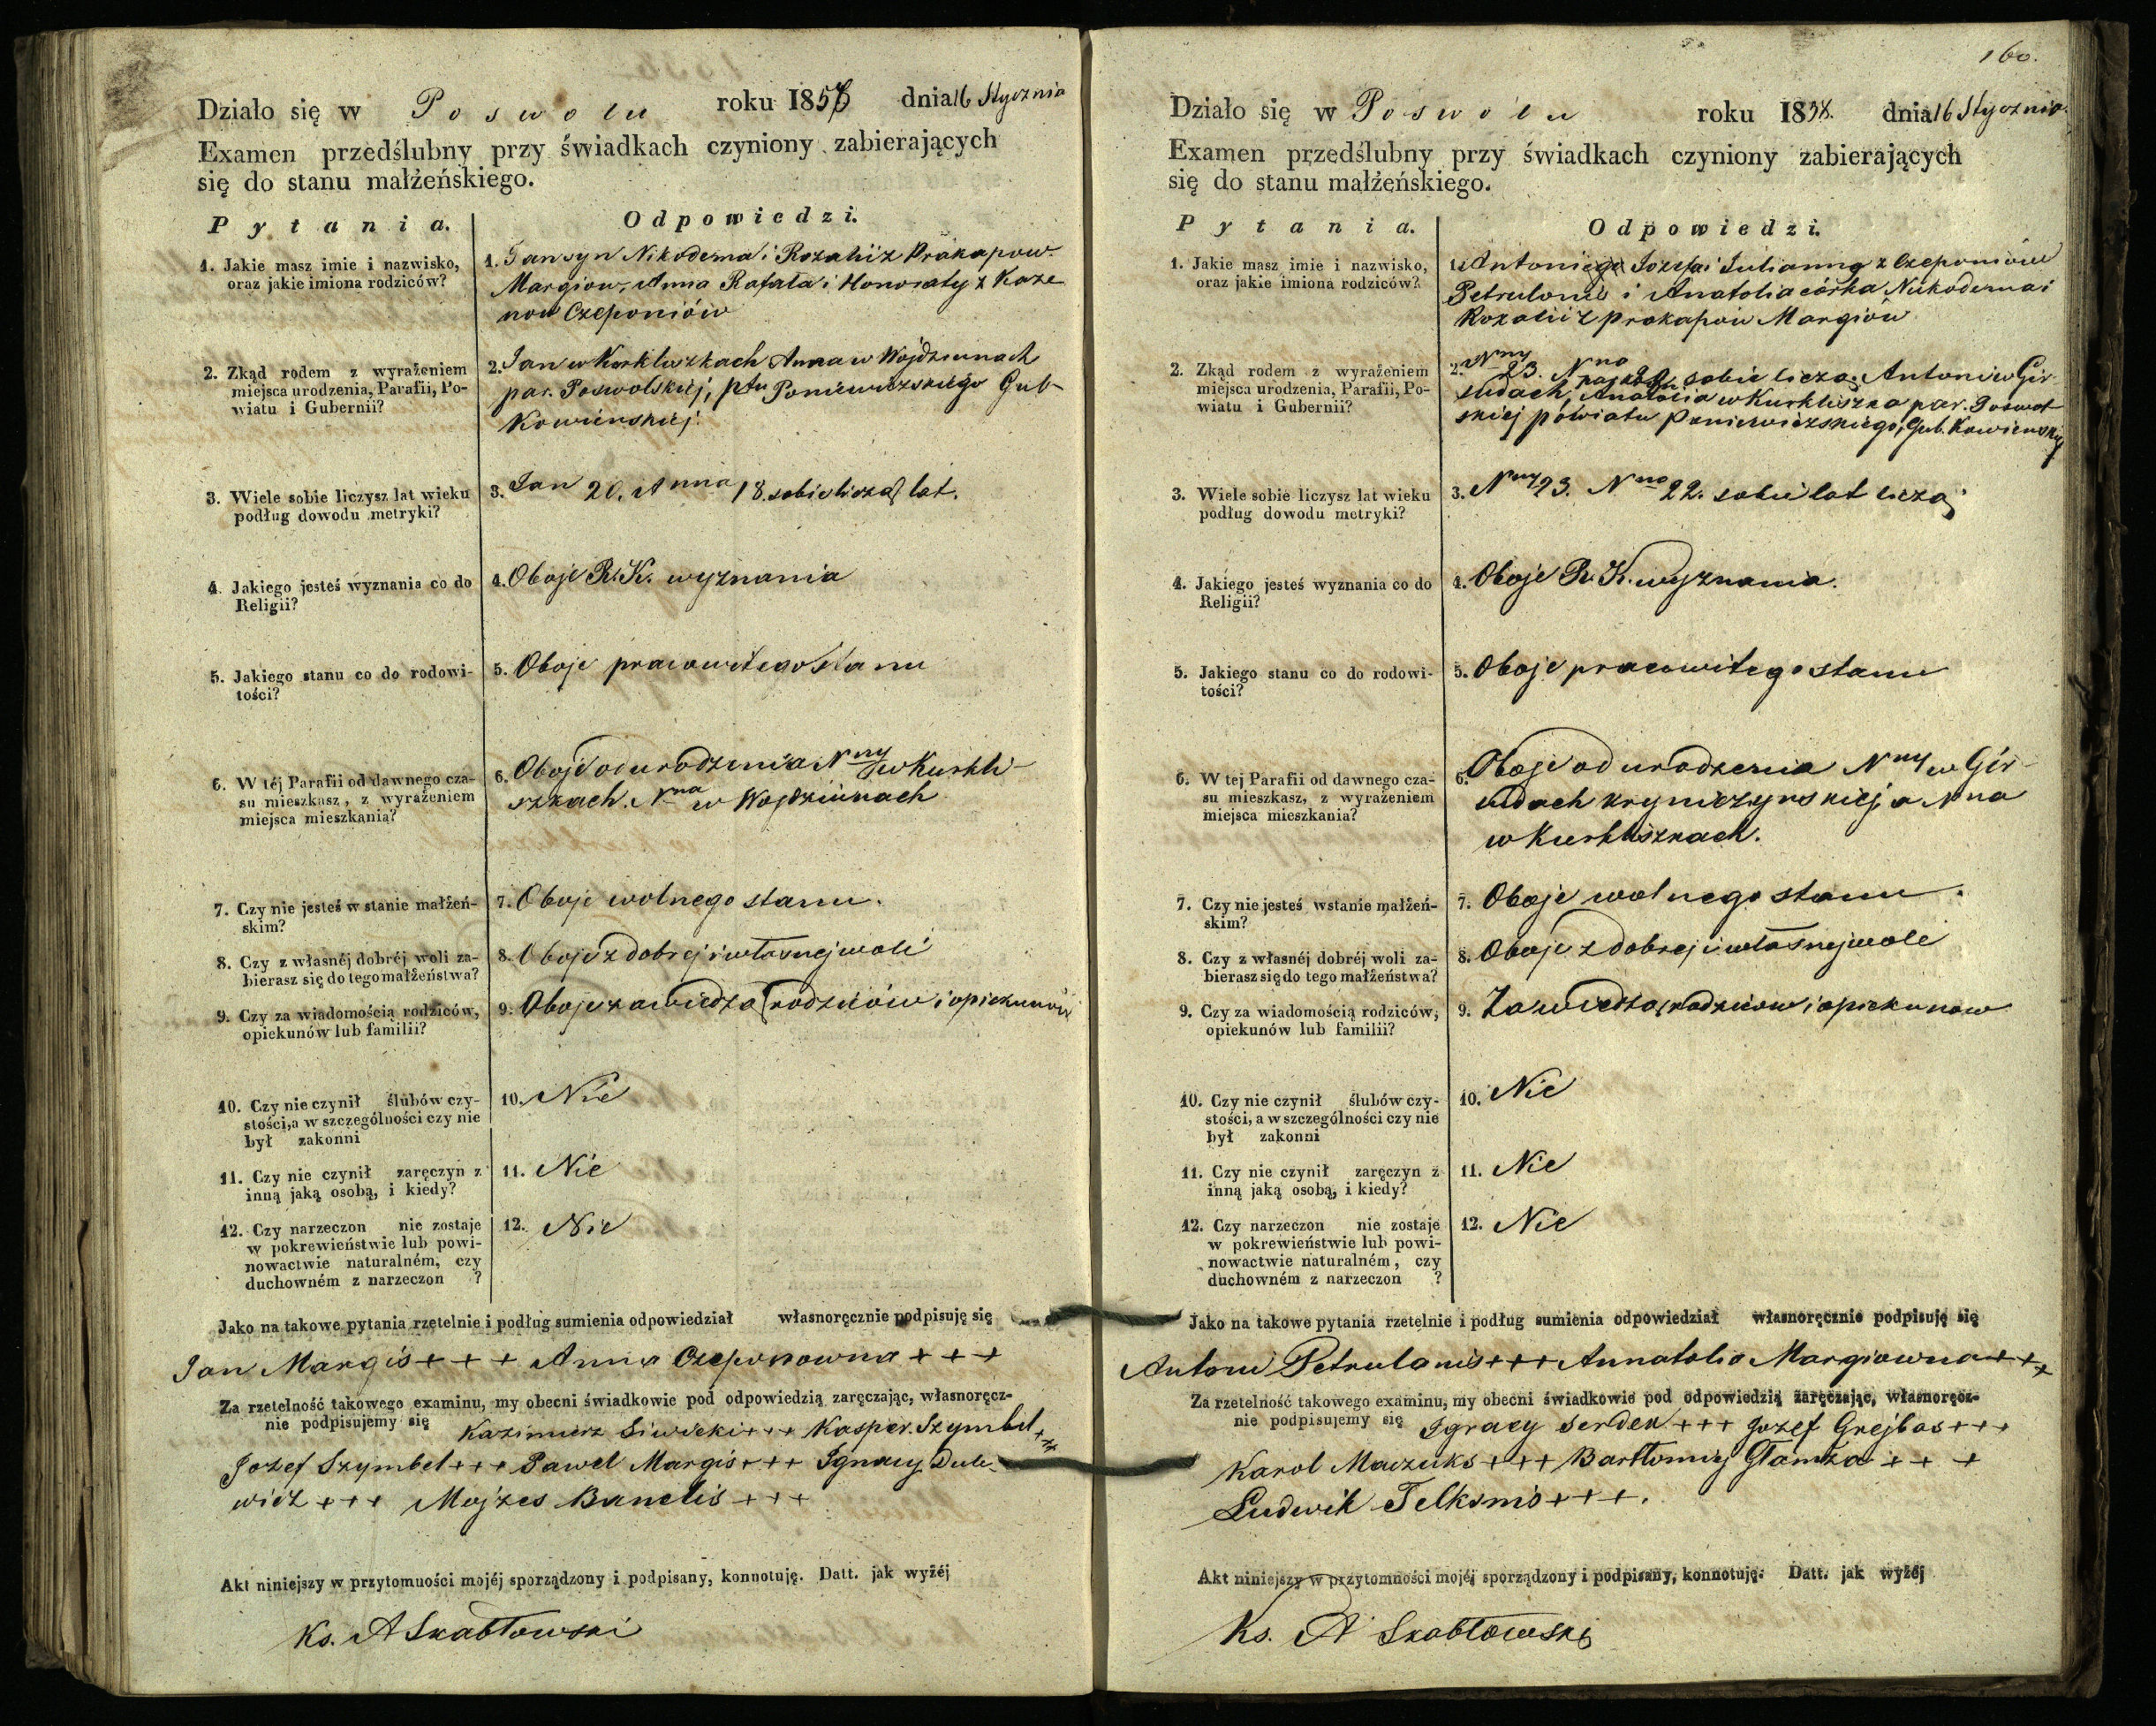 Działo się w Poswolu roku 1858 dnia 16 Stycznia
Examen przedślubny przy świadkach czyniony zabierających
się do stanu małżeńskiego.
Pytania. Odpowiedzi.
1. Jakie masz imie i nazwisko,
oraz jakie imiona rodziców?
1. Jan syn Nikodema i Rozalii z Prakapow.
Margiow, Anna Rafała i Honoraty z Kaze
now Czeponiów
2. Zkąd rodem z wyrażeniem
miejsca urodzenia, Parafii, Po-
wiatu i Gubernii?
2. Jan w Kurkliszkach Anna w Wojdziunach
par. Poswolskiej, ptu Poniewiezskiego Gub-
Kowienskiej.
3. Wiele sobie liczysz lat wieku
podług dowodu metryki?
3. Jan 20. Anna 18 sobie liczą lat.
4. Jakiego jesteś wyznania co do
Religii?
4. Oboje R. K. wyznania
5. Jakiego stanu co do rodowi-
tości?
5. Oboje pracowitego stanu
6. W téj Parafii od dawnego cza-
su mieszkasz, z wyrażeniem
miejsca mieszkania?
6. Oboje od urodzenia Nny w Kurkli-
szkach. Nna w Wojdziunach
7. Czy nie jesteś w stanie małżeń-
skim?
7. Oboje wolnego stanu.
8. Czy z własnéj dobréj woli za-
bierasz się do tego małżeństwa?
8. Oboje z dobrej i własnej woli
9. Czy za wiadomością rodziców,
opiekunów lub familii?
9. Oboje za wiedzą rodziców i opiekunów
10. Czy nie czynił ślubów czy-
stości, a w szczególności czy nie
był zakonni
10. Nie
11. Czy nie czynił zaręczyn z
inną jaką osobą, i kiedy?
11. Nie
12. Czy narzeczon nie zostaje
w pokrewieństwie lub powi-
nowactwie naturalném, czy
duchowném z narzeczon ?
12. Nie
Jako na takowe pytania rzetelnie i podług sumienia odpowiedział własnoręcznie podpisuję się
Jan Margis + + + Anna Czeponowna + + +
Za rzetelność takowego examinu, my obecni świadkowie pod odpowiedzią zaręczając, własnoręcz-
nie podpisujemy się Kazimierz Siwicki + + + Kasper Szymbel + + +
Jozef Szymbel + + + Pawel Margis + + + Ignacy Dule-
wicz + + + Mojzes Banelis + + +
Akt niniejszy w przytomności mojéj sporządzony i podpisany, konnotuję. Datt. jak wyżéj
Ks. A Skabłowski
160.
Działo się w Poswolu roku 1858. dnia 16 Stycznia.
Examen przedślubny przy świadkach czyniony zabierających
się do stanu małżeńskiego.
Pytania. Odpowiedzi.
1. Jakie masz imie i nazwisko,
oraz jakie imiona rodziców?
1. Antoni Jozefa i Julianny z Czeponiów
Petrulonis i Anatolia córka Nikodema i
Rozalii z Prokapow Margiow
2. Zkąd rodem z wyrażeniem
miejsca urodzenia, Parafii, Po-
wiatu i Gubernii?
2. Nny 23. Nna sobie liczą. Antoni w Gir
sudach, Anatolia w Kurkliszka par. Poswol
skiej powiatu Poniewiezskiego, Gub. Kowienskiej
3. Wiele sobie liczysz lat wieku
podług dowodu metryki?
3. Nny 23. Nna 22. sobie lat liczą.
4. Jakiego jesteś wyznania co do
Religii?
4. Oboje R. K. wyznania.
5. Jakiego stanu co do rodowi-
tości?
5. Oboje pracowitego stanu
6. W tej Parafii od dawnego cza-
su mieszkasz, z wyrażeniem
miejsca mieszkania?
6. Oboje od urodzenia Nny w Gir-
sudach kryniczynskiej a Nna
w Kurkliszkach.
7. Czy nie jesteś wstanie małżeń-
skim?
7. Oboje wolnego stanu.
8. Czy z własnéj dobréj woli za-
bierasz się do tego małżeństwa?
8. Oboje z dobrej i własnej wole
9. Czy za wiadomością rodziców,
opiekunów lub familii?
9. Za wiedzą rodzicow i opiekunow
10. Czy nie czynił ślubów czy-
stości, a w szczególności czy nie
był zakonni
10. Nie
11. Czy nie czynił zaręczyn z
inną jaką osobą, i kiedy?
11. Nie
12. Czy narzeczon nie zostaje
w pokrewieństwie lub powi-
nowactwie naturalném, czy
duchowném z narzeczon ?
12. Nie
Jako na takowe pytania rzetelnie i podług sumienia odpowiedział własnoręcznie podpisuję się
Antoni Petrulanis + + + Annatolia Margiowna + + +
Za rzetelność takowego examinu, my obecni świadkowie pod odpowiedzią zaręczając, własnoręcz-
nie podpisujemy się Igracy Serden + + + Jozef Grejbas + + +
Karol Maczuks + + + Bartłomiej Glamża + + +
Ludwik Telksnis + + +.
Akt niniejszy w przytomności mojéj sporządzony i podpisany, konnotuję. Datt. jak wyżéj
Ks. A Skabłowski